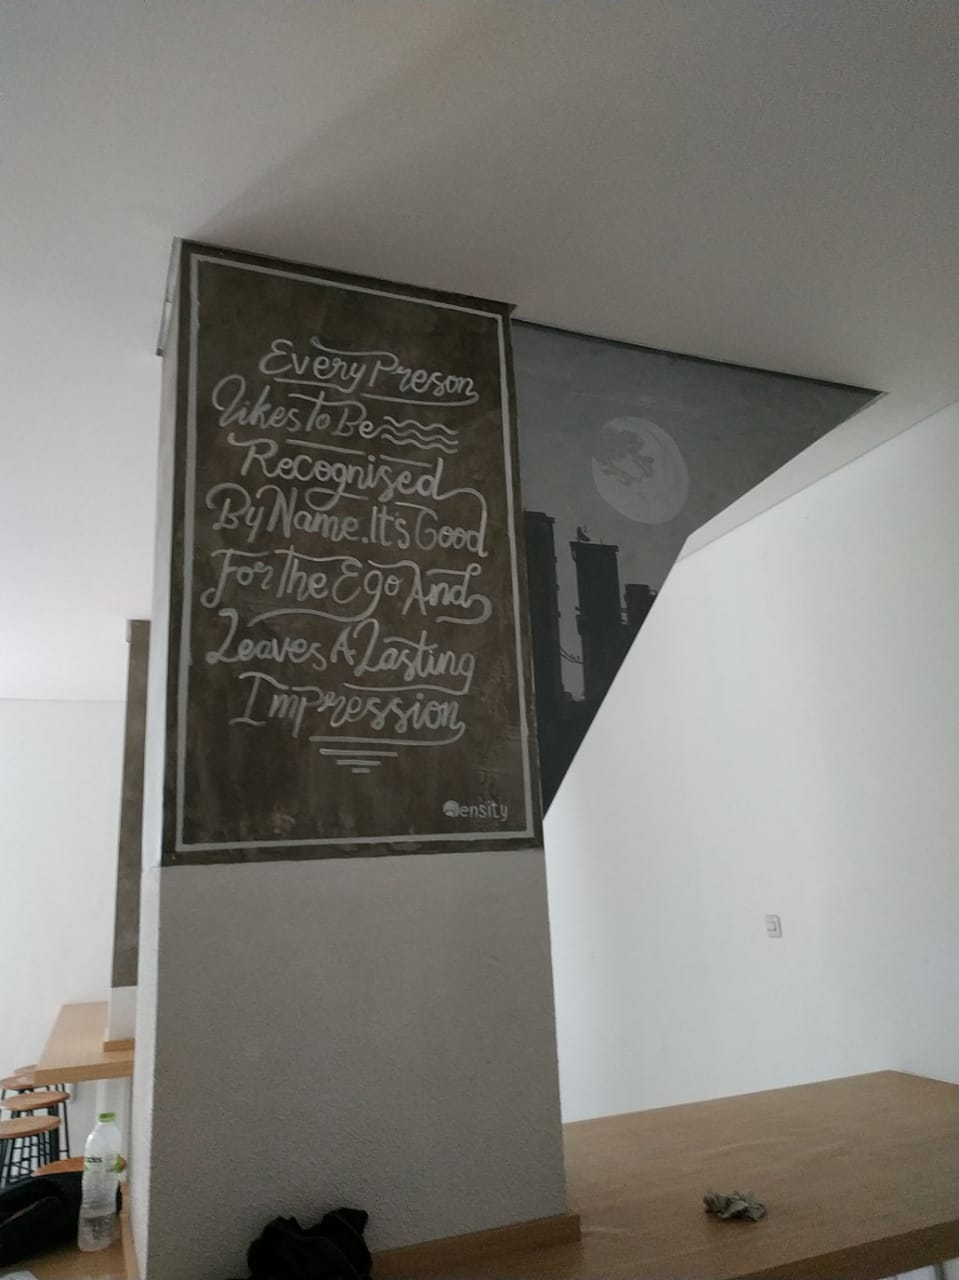 Every Preson
Likes To Be
Recognised
By Name. It's Good
For The Ego And
Leaves A Lasting
Impression
ensity